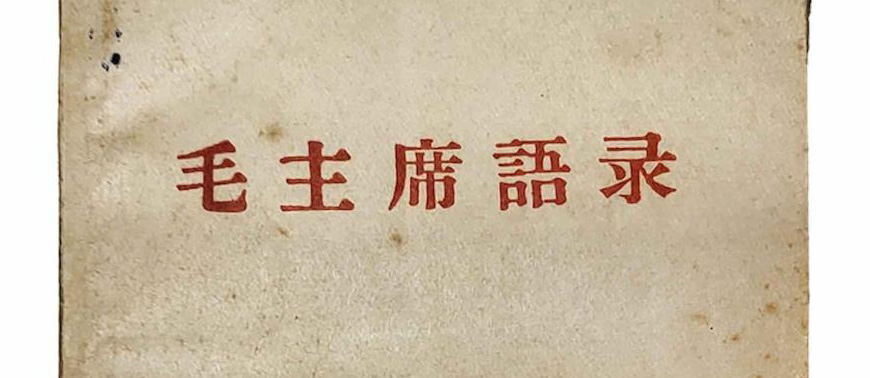 毛主席語录